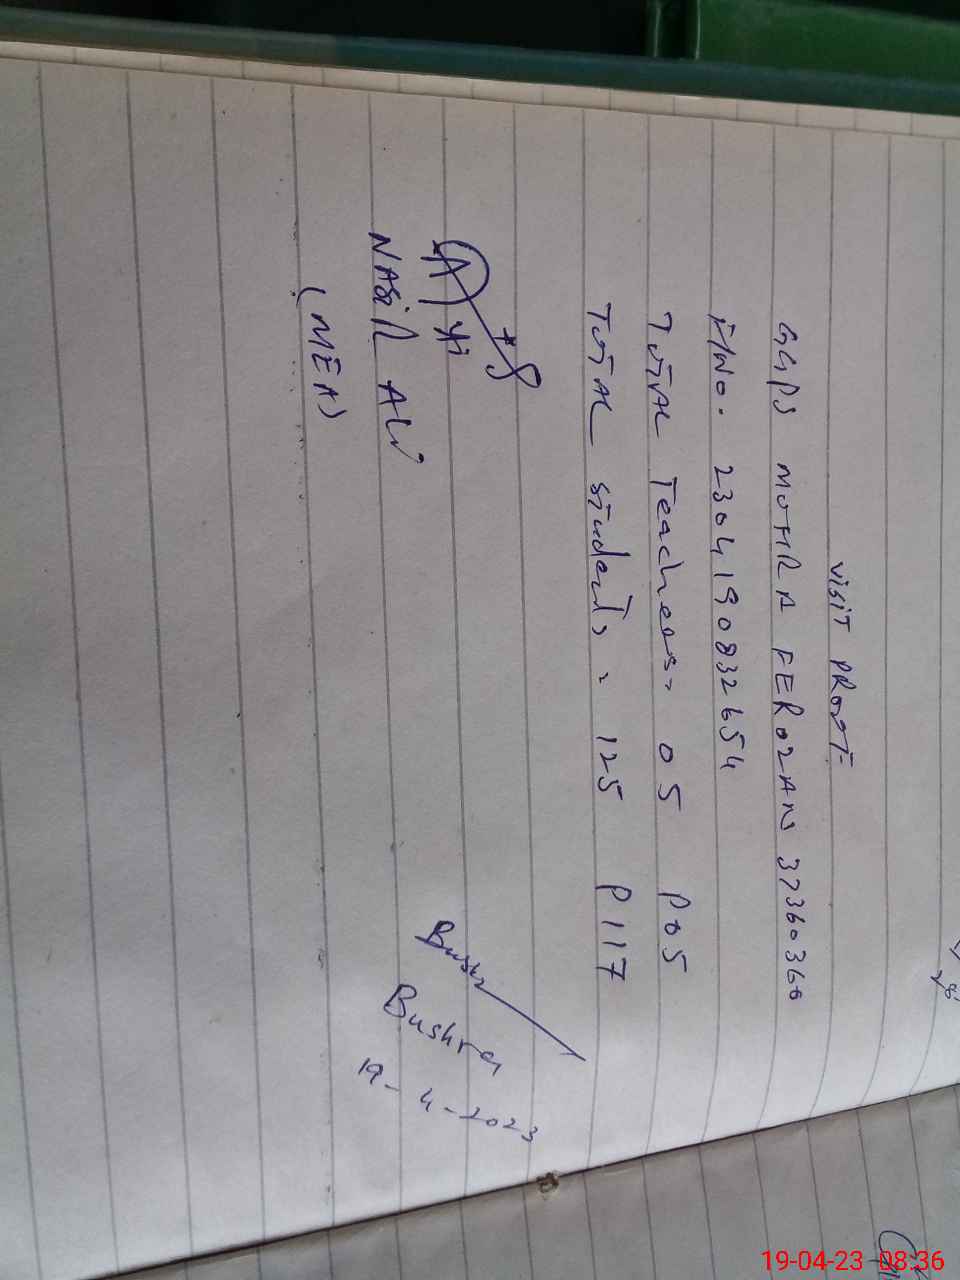 VISIT PROOF
GGPS MOHRA FEROZAN 37360360
F/No. 2304190832654
Total Teachers = 05 P 05
Total Students = 125 P 117
NASIR ALI
(MEA)
Bushra
19-4-2023
28
19-04-23 08:36